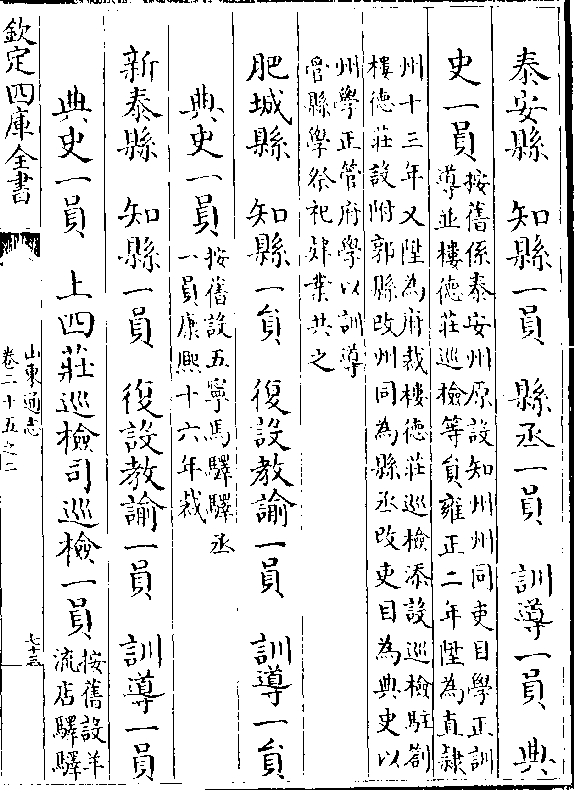 泰安縣 知縣一員 縣丞一員 訓導一員 典
史一員 按舊係泰安州原設知州州同吏目學正訓
導並樓德莊巡檢等員雍正二年陞為直隷
州十三年又陞為府裁樓德莊巡檢添設巡檢駐劄
樓德莊設附郭縣改州同為縣丞改吏目為典史以
州學正管府學以訓導
管縣學祭祀肄業共之
肥城縣 知縣一員 復設教諭一員 訓導一員
典史一員 按舊設五寧馬驛驛丞
一員康熙十六年裁
新泰縣 知縣一員 復設教諭一員 訓導一員
典史一員 上四莊巡檢司巡檢一員 按舊設羊
流店驛驛
欽定四庫全書
山東通志
卷二十五之二
七十三